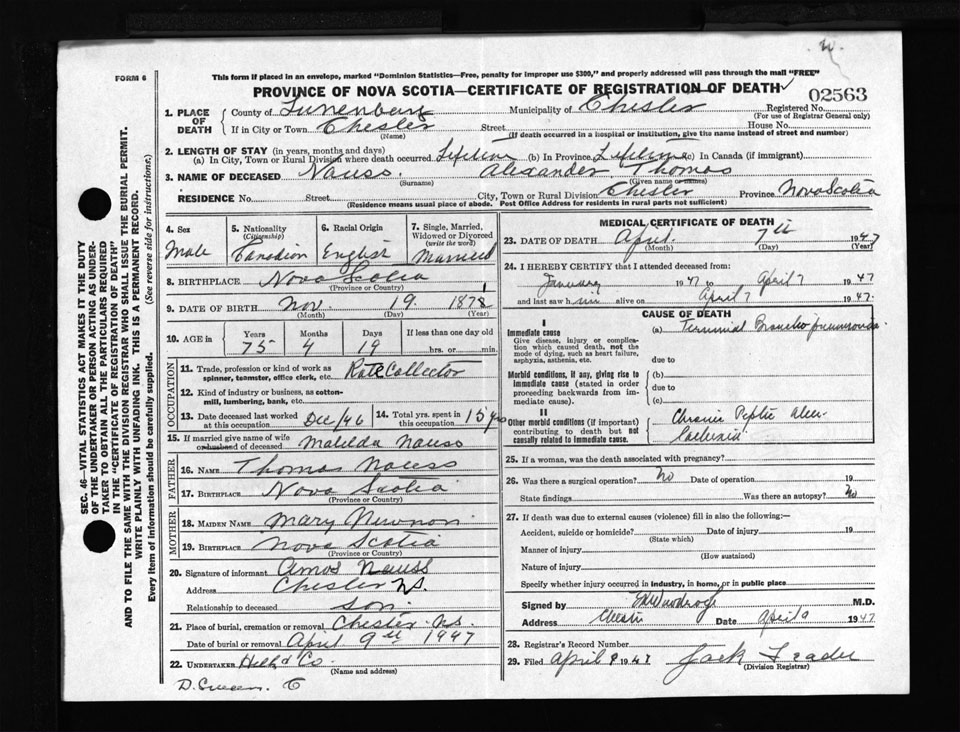 FORM 6
This form if placed in an envelope, marked "Dominion Statistics—Free, penalty for improper use $300," and properly addressed will pass through the mail "FREE"
PROVINCE OF NOVA SCOTIA—CERTIFICATE OF REGISTRATION OF DEATH
02563
1. PLACE OF DEATH County of Lunenburg Municipality of Chester Registered No.
(For use of Registrar General only)
If in City or Town Chester Street House No.
(Name) (If death occurred in a hospital or institution, give the name instead of street and number)
2. LENGTH OF STAY (in years, months and days)
(a) In City, Town or Rural Division where death occurred Lifetime (b) In Province Lifetime (c) In Canada (if immigrant)
3. NAME OF DECEASED Nauss. Alexander Thomas
(Surname) (Given name or names)
RESIDENCE No. Street City, Town or Rural Division Chester Province Nova Scotia
(Residence means usual place of abode. Post Office Address for residents in rural parts not sufficient)
4. Sex Male
5. Nationality (Citizenship) Canadian
6. Racial Origin English
7. Single, Married, Widowed or Divorced (write the word) Married
8. BIRTHPLACE Nova Scotia
(Province or Country)
9. DATE OF BIRTH Nov. 19 1871
(Month) (Day) (Year)
10. AGE in Years Months Days If less than one day old
75 4 19 hrs. or min.
OCCUPATION
11. Trade, profession or kind of work as spinner, teamster, office clerk, etc. Rate Collector
12. Kind of industry or business, as cotton-mill, lumbering, bank, etc.
13. Date deceased last worked at this occupation Dec/46
14. Total yrs. spent in this occupation 15 yrs
15. If married give name of wife or husband of deceased Matilda Nauss
FATHER
16. NAME Thomas Nauss
17. BIRTHPLACE Nova Scotia
(Province or Country)
MOTHER
18. MAIDEN NAME Mary
19. BIRTHPLACE Nova Scotia
(Province or Country)
20. Signature of informant Amos Nauss
Address Chester N.S.
Relationship to deceased son
21. Place of burial, cremation or removal Chester N.S.
Date of burial or removal April 9th 1947
22. UNDERTAKER Co.
(Name and address)
MEDICAL CERTIFICATE OF DEATH
23. DATE OF DEATH April 7th 1947
(Month) (Day) (Year)
24. I HEREBY CERTIFY that I attended deceased from:
January 1947 to April 7 1947
and last saw him alive on April 7 1947.
CAUSE OF DEATH
I
Immediate cause
Give disease, injury or complication which caused death, not the mode of dying, such as heart failure, asphyxia, asthenia, etc.
(a) Terminal Broncho pneumonia
due to
Morbid conditions, if any, giving rise to immediate cause (stated in order proceeding backwards from immediate cause).
(b)
due to
(c)
II
Other morbid conditions (if important) contributing to death but not causally related to immediate cause.
Chronic Peptic Ulcer
Cachexia
25. If a woman, was the death associated with pregnancy?
26. Was there a surgical operation? No Date of operation 19
State findings Was there an autopsy? No
27. If death was due to external causes (violence) fill in also the following:—
Accident, suicide or homicide? Date of injury 19
(State which)
Manner of injury
(How sustained)
Nature of injury
Specify whether injury occurred in industry, in home, or in public place
Signed by M.D.
Address Chester Date April 1947
28. Registrar's Record Number
29. Filed April 9 1947 Jack
(Division Registrar)
SEC. 46—VITAL STATISTICS ACT MAKES IT THE DUTY
OF THE UNDERTAKER OR PERSON ACTING AS UNDER-
TAKER TO OBTAIN ALL THE PARTICULARS REQUIRED
IN THE "CERTIFICATE OF REGISTRATION OF DEATH"
AND TO FILE THE SAME WITH THE DIVISION REGISTRAR WHO SHALL ISSUE THE BURIAL PERMIT.
WRITE PLAINLY WITH UNFADING INK. THIS IS A PERMANENT RECORD.
Every item of information should be carefully supplied. (See reverse side for instructions.)